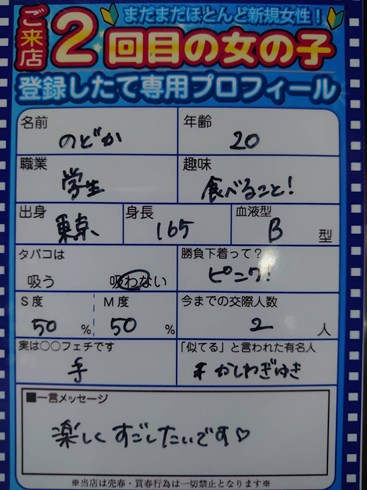 まだまだほとんど新規女性!
ご来店2回目の女の子
登録したて専用プロフィール
名前 のどか 年齢 20
職業 学生 趣味 食べること!
出身 東京 身長 165 血液型 B 型
タバコは 吸う 吸わない 勝負下着って? ピンク!
S度 50 % M度 50 % 今までの交際人数 2 人
実は○○フェチです 手 「似てる」と言われた有名人 かしわぎゆき
■一言メッセージ
楽しくすごしたいです♡
※当店は売春・買春行為は一切禁止となります※